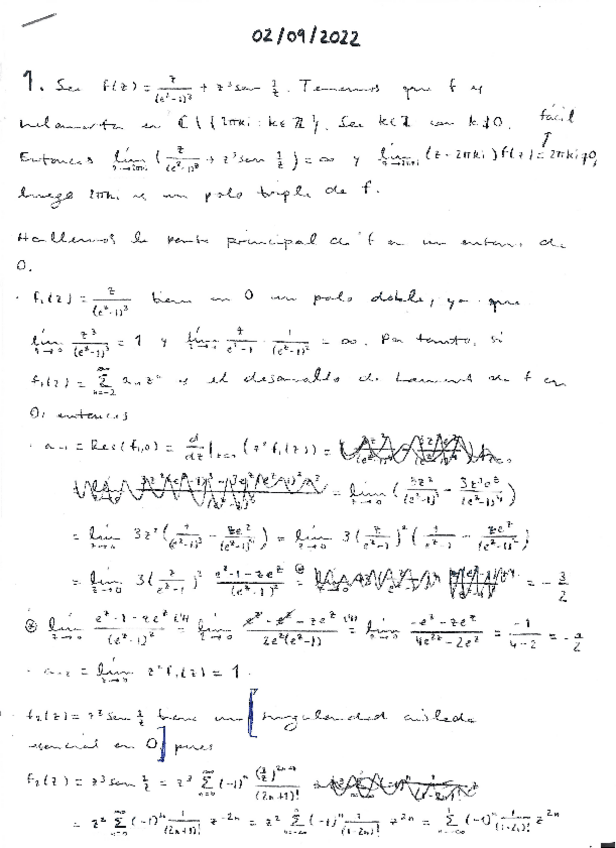 02/09/2022
1. Sea f(z) = z/(e^z-1)^3 + z^3 sen 1/z. Tenemos que f es
holomorfa en ℂ\{2πki : k∈ℤ}. Sea k∈ℤ con k≠0. fácil
Entonces lím_{z→2πki} (z/(e^z-1)^3 + z^3 sen 1/z) = ∞ y lím (z-2πki) f(z) = 2πki ≠ 0,
luego 2πki es un polo triple de f.
Hallemos la parte principal de f en un entorno de
0.
· f₁(z) = z/(e^z-1)^3 tiene en 0 un polo doble, ya que
lím_{z→0} z^3/(e^z-1)^3 = 1 y lím_{z→0} z/(e^z-1) · 1/(e^z-1)^2 = ∞. Por tanto, si
f₁(z) = Σ_{n=-2}^∞ a_n z^n es el desarrollo de Laurent de f en
0, entonces
· a₋₁ = Res(f₁,0) = d/dz|_{z=0} (z^2 f₁(z)) =
= lím_{z→0} (3z^2/(e^z-1)^3 - 3z^3e^z/(e^z-1)^4)
= lím_{z→0} 3z^2 (1/(e^z-1)^3 - ze^z/(e^z-1)^4) = lím_{z→0} 3(z/(e^z-1))^2 (1/(e^z-1) - ze^z/(e^z-1)^2)
= lím_{z→0} 3(z/(e^z-1))^2 (e^z-1-ze^z)/(e^z-1)^2 = -3/2
lím_{z→0} (e^z-1-ze^z)/(e^z-1)^2 = lím_{z→0} (e^z-e^z-ze^z)/(2e^z(e^z-1)) = lím_{z→0} (-e^z-ze^z)/(4e^{2z}-2e^z) = -1/(4-2) = -1/2
· a₋₂ = lím_{z→0} z^2 f₁(z) = 1.
· f₂(z) = z^3 sen 1/z tiene una [singularidad aislada
esencial en 0,] pues
f₂(z) = z^3 sen 1/z = z^3 Σ_{n=0}^∞ (-1)^n (1/z)^{2n+1}/(2n+1)!
= z^2 Σ_{n=0}^∞ (-1)^n 1/(2n+1)! z^{-2n} = z^2 Σ_{n=-∞}^0 (-1)^n 1/(1-2n)! z^{2n} =